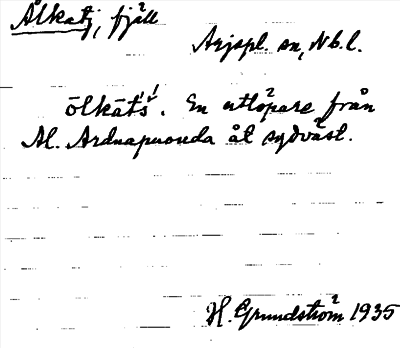 Ålkatj, fjäll
Arjepl. sn, Nb. l.
ōlkāt́š́. En utlöpare från
Al. Ardnapuouda åt sydväst.
H. Grundström 1935